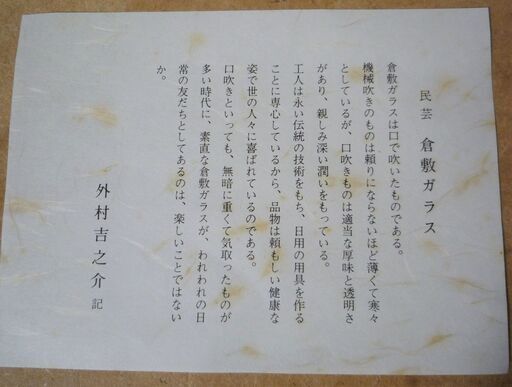 民芸 倉敷ガラス
倉敷ガラスは口で吹いたものである。
機械吹きのものは頼りにならないほど薄くて寒々
としているが、口吹きものは適当な厚味と透明さ
があり、親しみ深い潤いをもっている。
工人は永い伝統の技術をもち、日用の用具を作る
ことに専心しているから、品物は頼もしい健康な
姿で世の人々に喜ばれているのである。
口吹きといっても、無暗に重くて気取ったものが
多い時代に、素直な倉敷ガラスが、われわれの日
常の友だちとしてあるのは、楽しいことではない
か。
外村吉之介 記